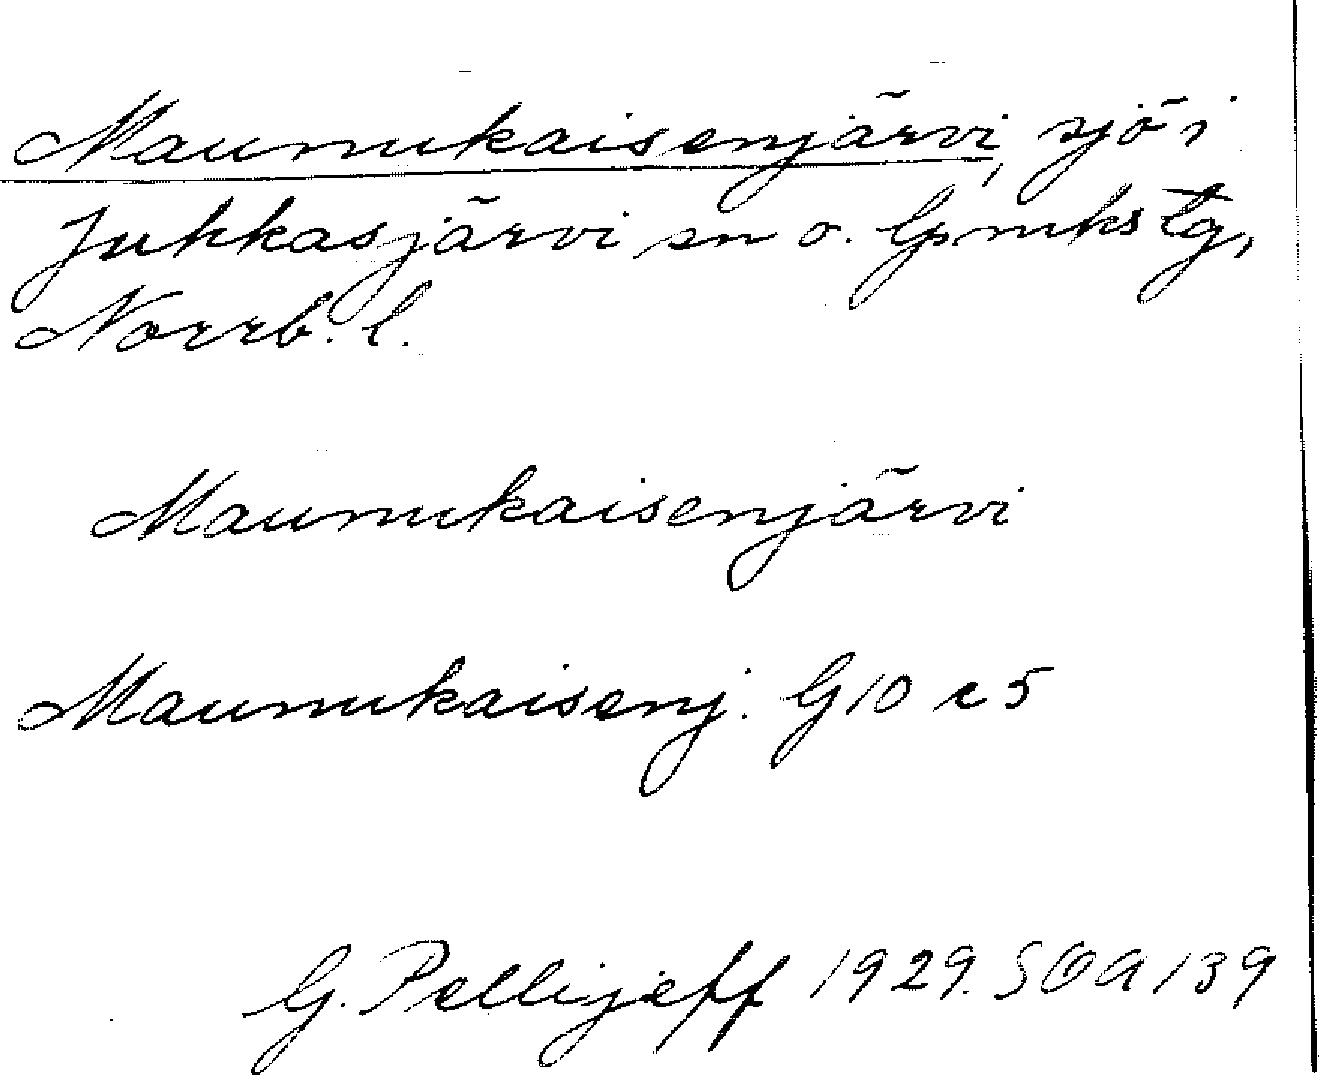 Maunukaisenjärvi, sjö i
Jukkasjärvi sn o. lpmkstg,
Norrb. l.
Maunukaisenjärvi
Maunukaisenj. G 10 c 5
G. Pellijeff 1929. SOA 139